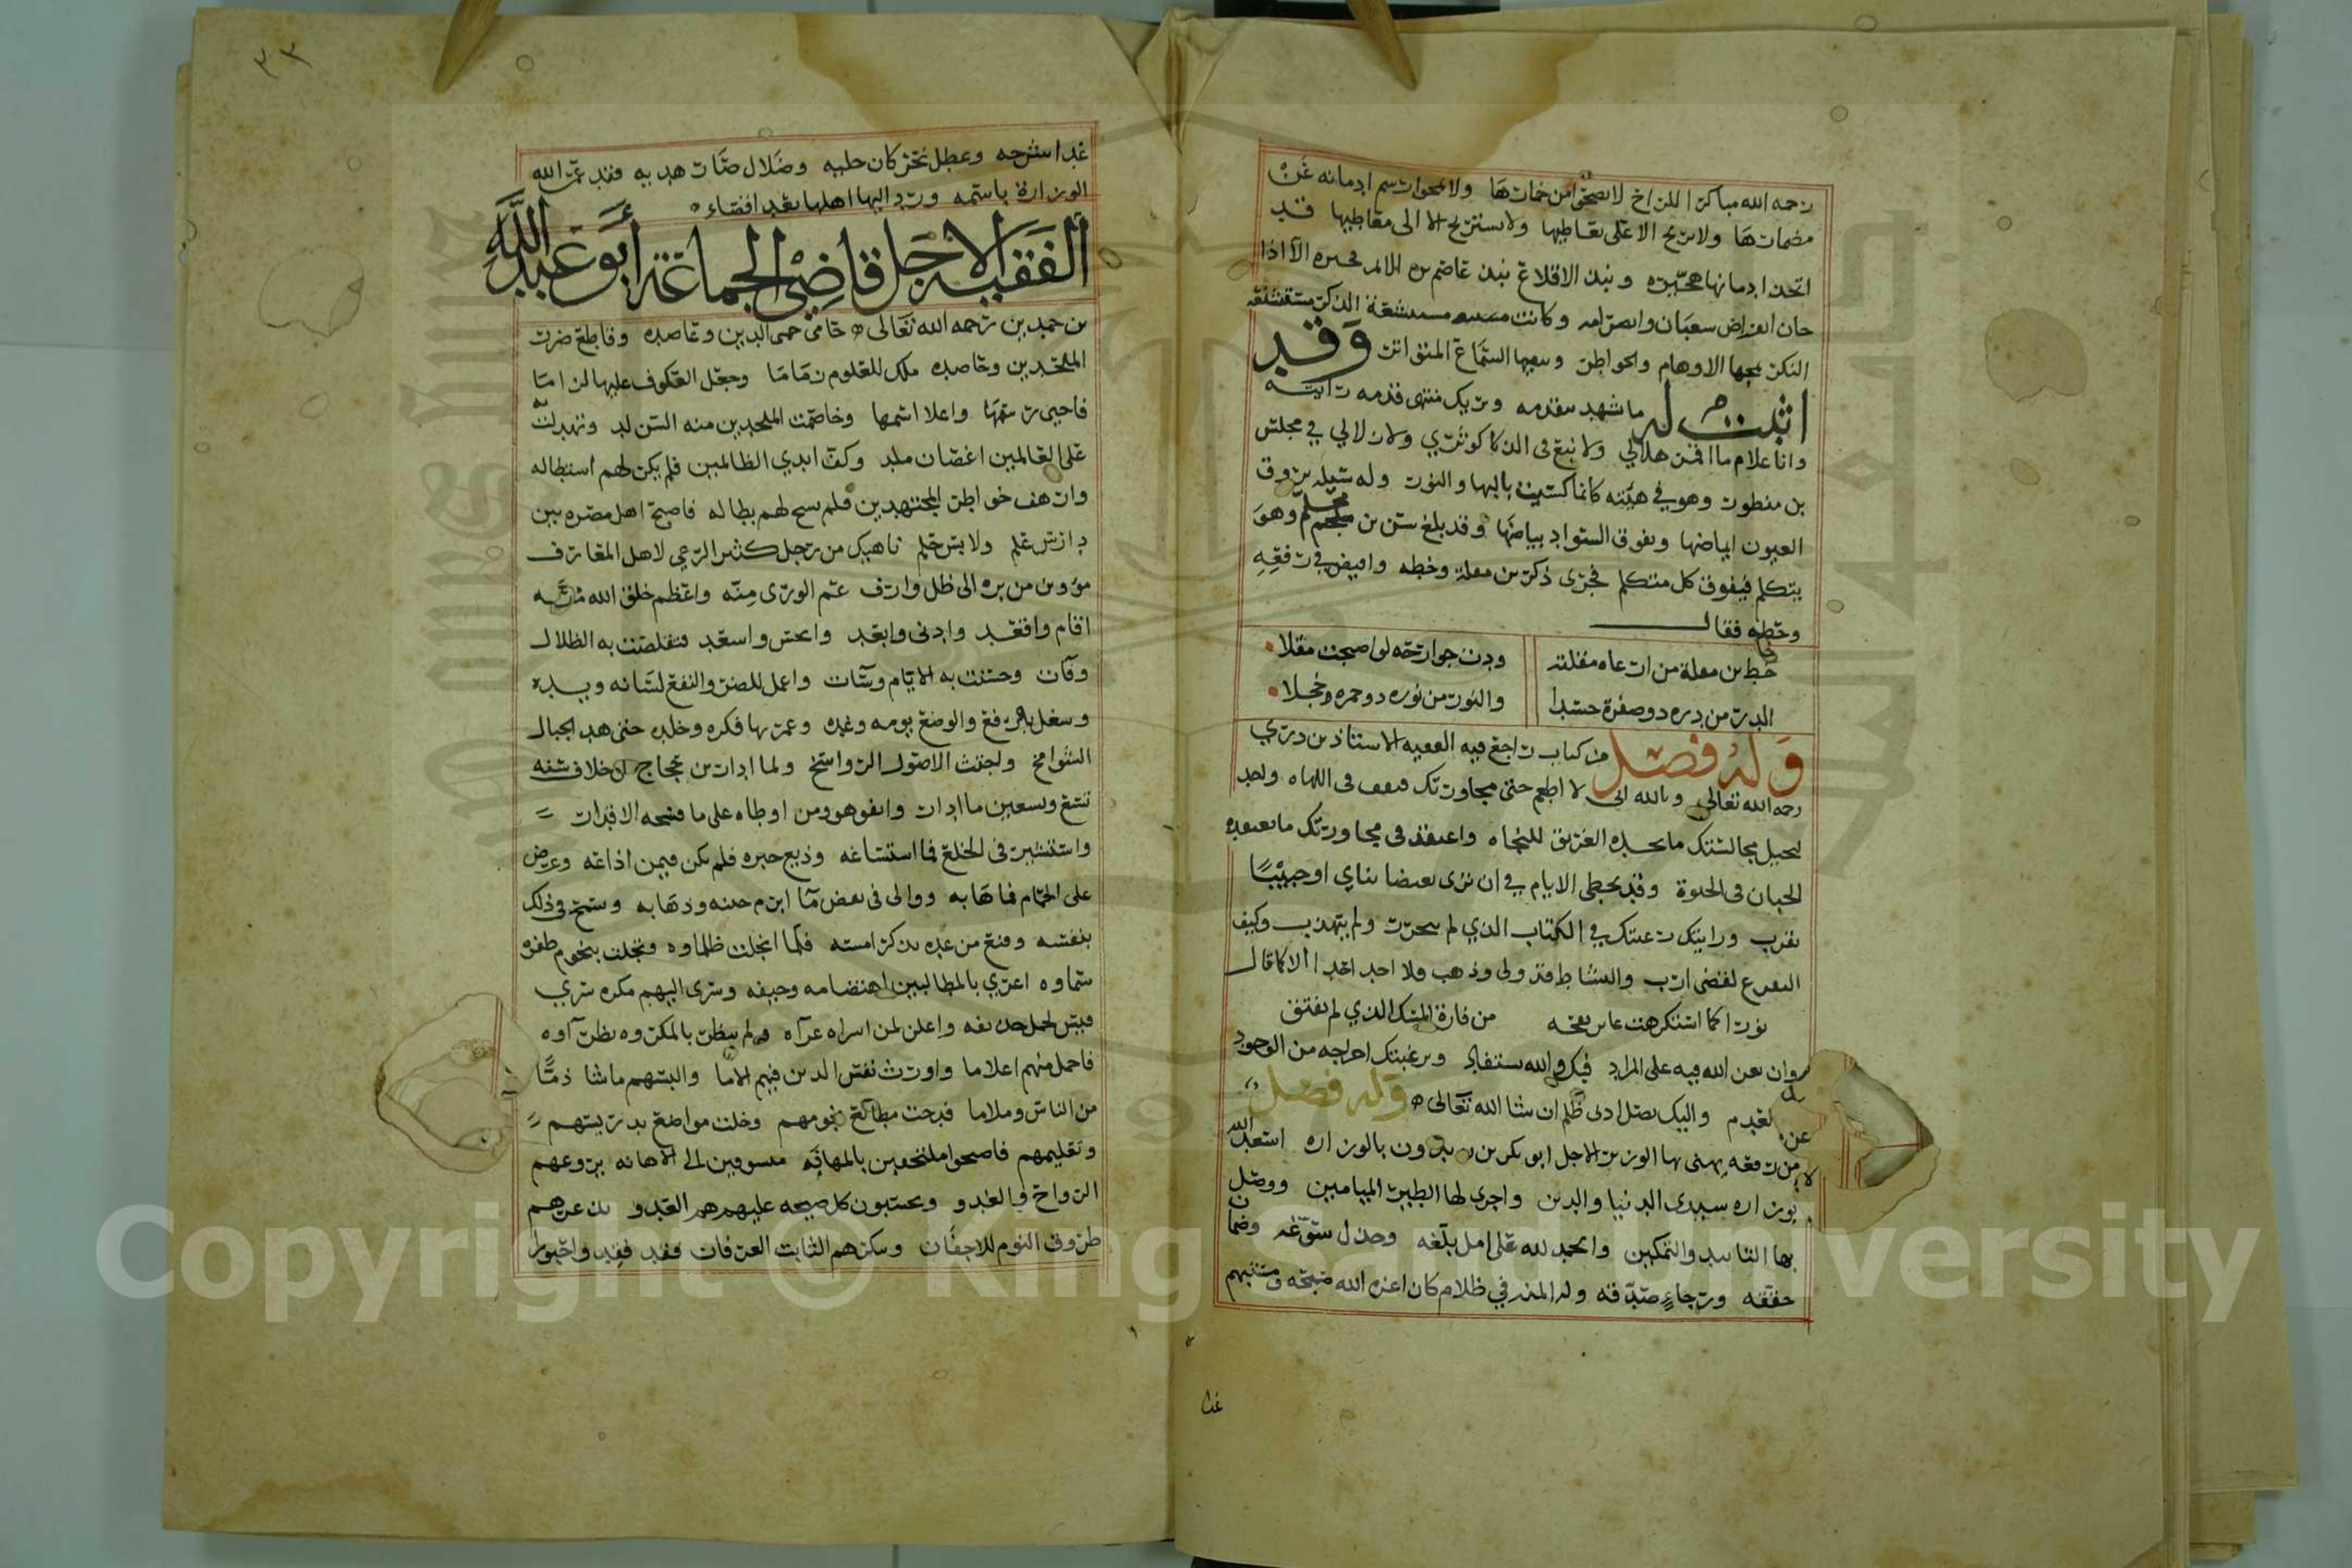 رحمه الله مباكرا للراح لا يصحو من خمارها ولا يمحو رسم ادمانه عن
مضمارها ولا يريح الا على تعاطيها ولا يستريح الا الى معاطيها قد
اتخذ ادمانها هجيره ونبذ الاقلاع نبذ عاصم الا اذا
حان انقراض شعبان وانصرامه وكانت الذكر مستشنعه
النكر تمجها الاوهام والخواطر السماع المتواتر وقد
اثبت له ما شهد بتقدمه ويريك منتهى قدمه رايته
وانا غلام ما اقمر هلالي ولا نبع في الذكا كوثري ولا زلالي في مجلس
بن منظور وهو في هيئته كانما كسيت بالبها والنور وله سبله يروق
العيون ايماضها ويفوق السواد بياضها وقد بلغ سن بن محلم وهو
يتكلم فيفوق كل متكلم فجرى ذكر بن مقلة وخطه وافيض في رفعه
وحطه فقال
خط بن مقلة من ارعاه مقلته ودت جوارحه لو اصبحت مقلا
الدر من دره ذو صفرة حسدا والنور من نوره ذو حمره وخجلا
وله فصل من كتاب راجع فيه الفقيه الاستاذ
رحمه الله تعالى وبالله اني لا اطعم جنى محاورتك فيقف في اللهاه واجد
لتخيل مجالستك ما يجده الغريق للنجاه واعتقد في مجاورتك ما يعتقده
الجبان في الحياة وقد تخطي الايام في ان ترى بغيضا تناي او حبيبا
تقرب ورايتك رغبتك في الكتاب الذي لم يتحرر ولم يتهذب وكيف
التفرغ لقضى ارب والنشاط قد ولى وذهب فلا اجد الا كما قال
نزرا كما استكرهت عاير نفحه من فارة المسك الذي لم يفتق
وان يعن الله فيه على المراد فيك والله يستفاد وبرغبتك اخرجه من الوجود
الى العدم واليك يصل ادنى ظلم ان شا الله تعالى وله فصل
من رقعه يهنى بها الوزير الاجل ابو بكر بن زيدون بالوزاره اسعد الله
بوزاره سيدي الدنيا والدين واجرى لها الطير الميامين ووصل
بها التاييد والتمكين والحمد لله على امل بلغه وجذل سوغه وضمان
حققه ورجاء صدقه وله المنه في ظلام كان اعزه الله صبحه ومستبهم
غدا
٣٣
غدا شرحه وعطل نحر كان حليه وضلال صار هديه فقد عمر الله
الوزارة باسمه ورد اليها اهلها بعد اقصاء
الفقيه الاجل قاضي الجماعة ابو عبد الله
بن حمدين رحمه الله تعالى حامي حمى الدين وعاضده وقاطع ضرر
الملحدين وخاضده ملك للعلوم زماما وجعل العكوف عليها لزاما
فاحيى رسمها واعلا اسمها وخاصمت الملحدين منه السن لد وتهدلت
على العالمين اغصان ملد وكف ايدي الظالمين فلم يكن لهم استطاله
وارهف خواطر المجتهدين فلم يسنح لهم بطاله فاصبح اهل مصره بين
دارس علم ولابس حلم ناهيك من رجل كثير الرعي لاهل المعارف
مؤو من بره الى ظل وارف عم الورى منه واعظم خلق الله منه
اقام واقعد وادنى وابعد وانحس واسعد فتقلصت به الظلال
وفات وحسنت به الايام وسات واعمل للضر والنفع لسانه ويده
وشغل بالرفع والوضع يومه وغده وعمر بها فكره وخلده حتى هد الجبال
الشوامخ واجتث الاصول الرواسخ ولما ادار بن حجاج الخلاف سنه
تسع وتسعين ما ادار واتفق هو ومن اوطاه على ما فسخه الاقدار
واستشير في الخلع فما استساغه فلم يكن فيمن اذاعه وعرض
على الحمام فما هابه ووالى في نقض ما ابرم جيئه وذهابه وسمح في ذلك
بنفسه وقنع من غده بذكر امسه فلما انجلت ظلماوه وتجلت بنجوم ظفره
سماوه اغري بالمطالبين اهتضامه وحيفه وسرى اليهم مكره سري
ولم ينظر بالمكروه نظر آوه
فاخمل منهم اعلاما واورث نفس الدين فيهم الاما والبسهم ما شا ذما
من الناس وملاما فدجت مطالع نجومهم وخلت مواضع تدريسهم
وتعليمهم فاصبحوا ملتحفين بالمهابه مسوفين الى الاهانه يروعهم
الرواح والغدو ويحسبون كل صيحه عليهم هم العدو يذعرهم
طروق النوم للاجفان وينكرهم الثابت العرفان فقد فقدوا